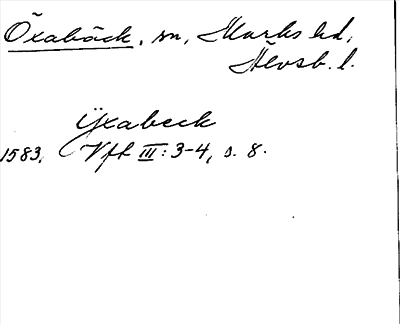 Öxabäck, sn, Marks hd,
Älvsb. l.
Yxabeck
1583, Vfk III: 3-4, s. 8.